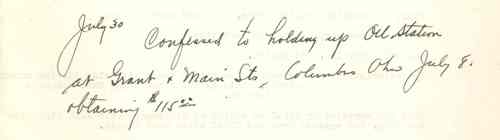 July 30 Confessed to holding up Oil Station
at Grant & Main Sts, Columbus Ohio July 8.
obtaining $115.00